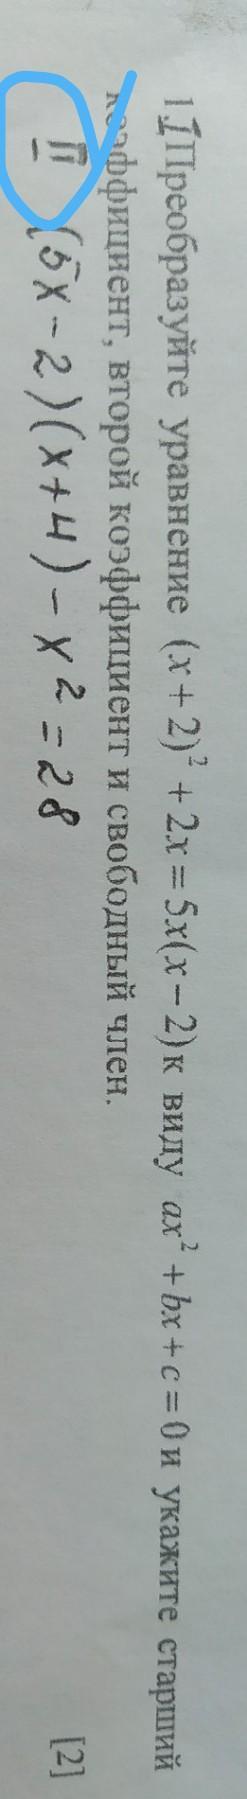 1. I Преобразуйте уравнение (x + 2)² + 2x = 5x(x − 2) к виду ax² + bx + c = 0 и укажите старший
коэффициент, второй коэффициент и свободный член. [2]
II (5x − 2)(x + 4) − x² = 28